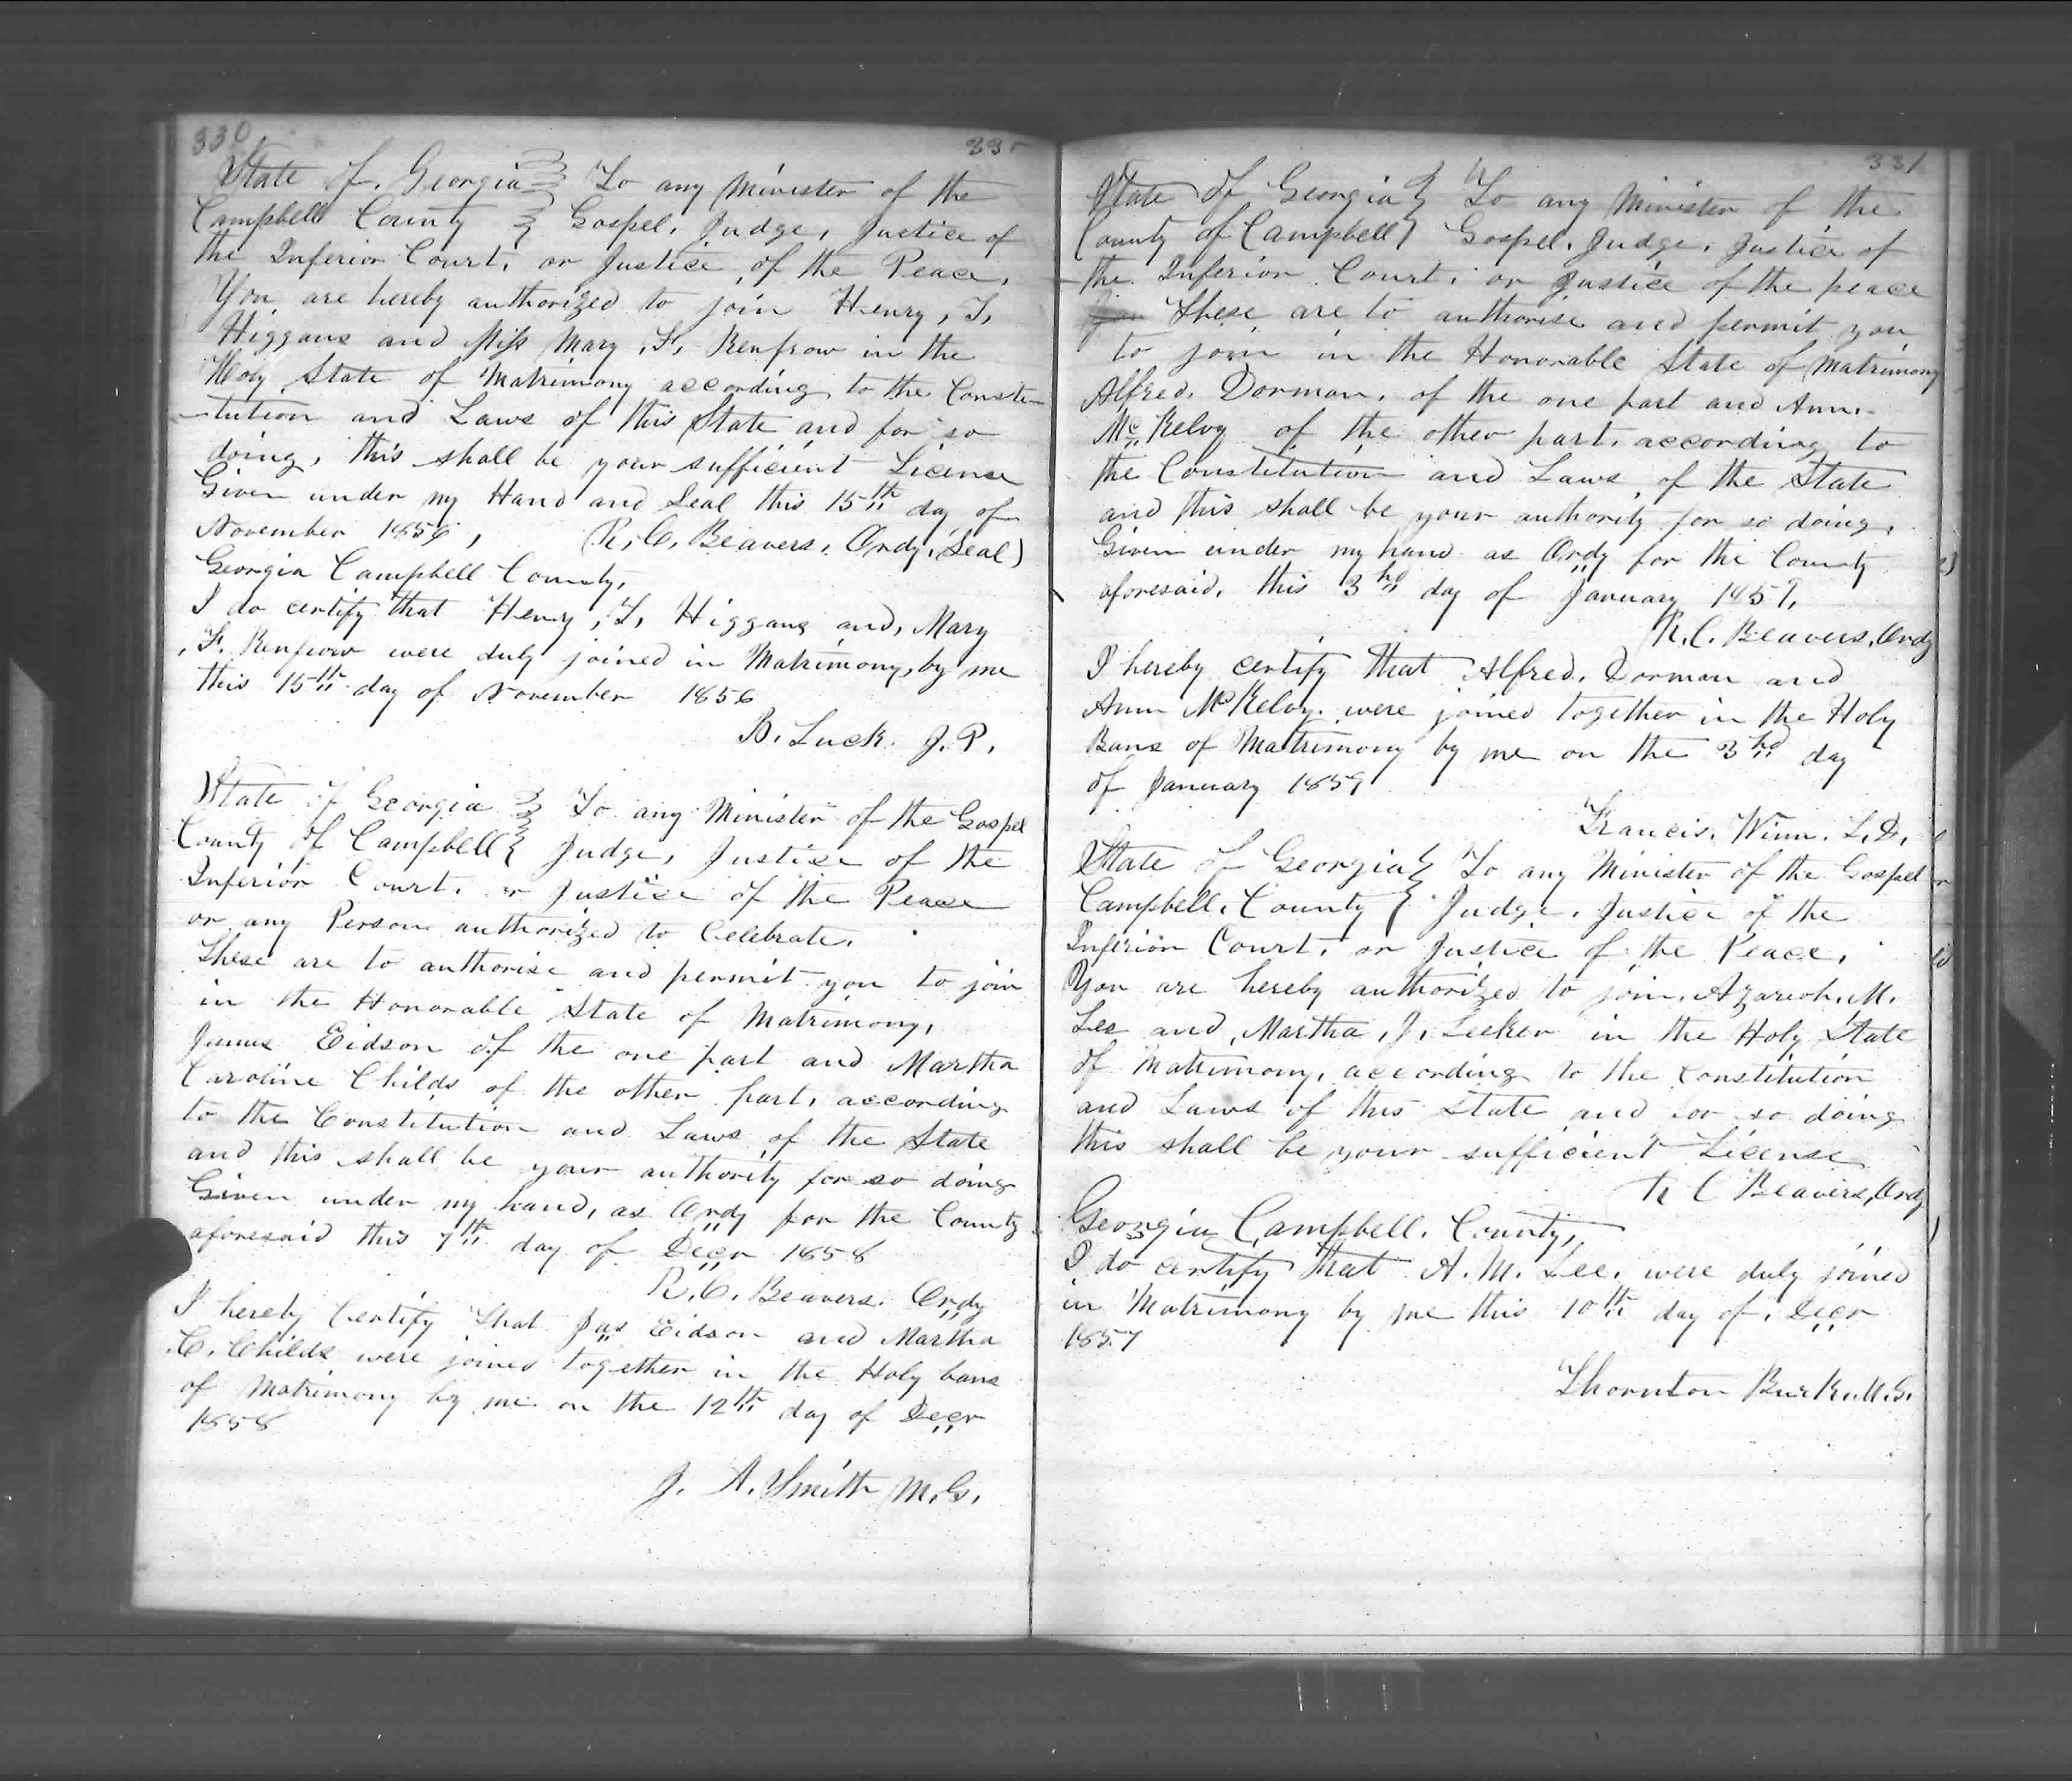 330
State of Georgia } To any Minister of the
Campbell County } Gospel, Judge, Justice of
the Inferior Court, or Justice of the Peace,
You are hereby authorized to join Henry, T,
Higgans and Miss Mary, F, Renfrow in the
Holy State of Matrimony according to the Consti-
-tution and Laws of this State and for so
doing, this shall be your sufficient License
Given under my Hand and Seal this 15th day of
November 1856, R, C, Beavers, Ordy, (Seal)
Georgia Campbell County,
I do certify that Henry, T, Higgans and, Mary
, F. Renfrow were duly joined in Matrimony, by me
this 15th day of November 1856
B. Luck. J. P.
State of Georgia } To any Minister of the Gospel
County of Campbell } Judge, Justice of the
Inferior Court, or Justice of the Peace
or any Person authorized to Celebrate.
These are to authorise and permit you to join
in the Honorable State of Matrimony,
James Eidson of the one part and Martha
Caroline Childs of the other part, according
to the Constitution and Laws of the State
and this shall be your authority for so doing
Given under my hand, as Ordy for the County
aforesaid this 7th day of Decr 1858
R. C. Beavers. Ordy
I hereby Certify that Jas Eidson and Martha
C. Childs were joined together in the Holy bans
of Matrimony by me on the 12th day of Decr
1858
J. A. Smith M. G.
331
State of Georgia } To any Minister of the
County of Campbell } Gospel, Judge, Justice of
the Inferior Court, or Justice of the peace
These are to authorise and permit you
to join in the Honorable State of Matrimony
Alfred, Dorman, of the one part and Ann,
McKelvy of the other part, according to
the Constitution and Laws of the State
and this shall be your authority for so doing,
Given under my hand as Ordy for the County
aforesaid, this 3rd day of January 1859,
R. C. Beavers, Ordy
I hereby certify that Alfred, Dorman and
Ann McKelvy, were joined together in the Holy
Bans of Matrimony by me on the 3rd day
of January 1859
Francis, Winn. L. D.
State of Georgia } To any Minister of the Gospel
Campbell, County } Judge, Justice of the
Inferior Court, or Justice of the Peace,
You are hereby authorized to join, Azareoh, M.
Lee and, Martha, J, Leeker in the Holy State
of Matrimony, according to the Constitution
and Laws of this State and for so doing
this shall be your sufficient License
R C Beavers, Ordy
Georgia Campbell, County,
I do certify that A. M. Lee, were duly joined
in Matrimony by me this 10th day of, Decr
1857
Thornton Burk. M. G.